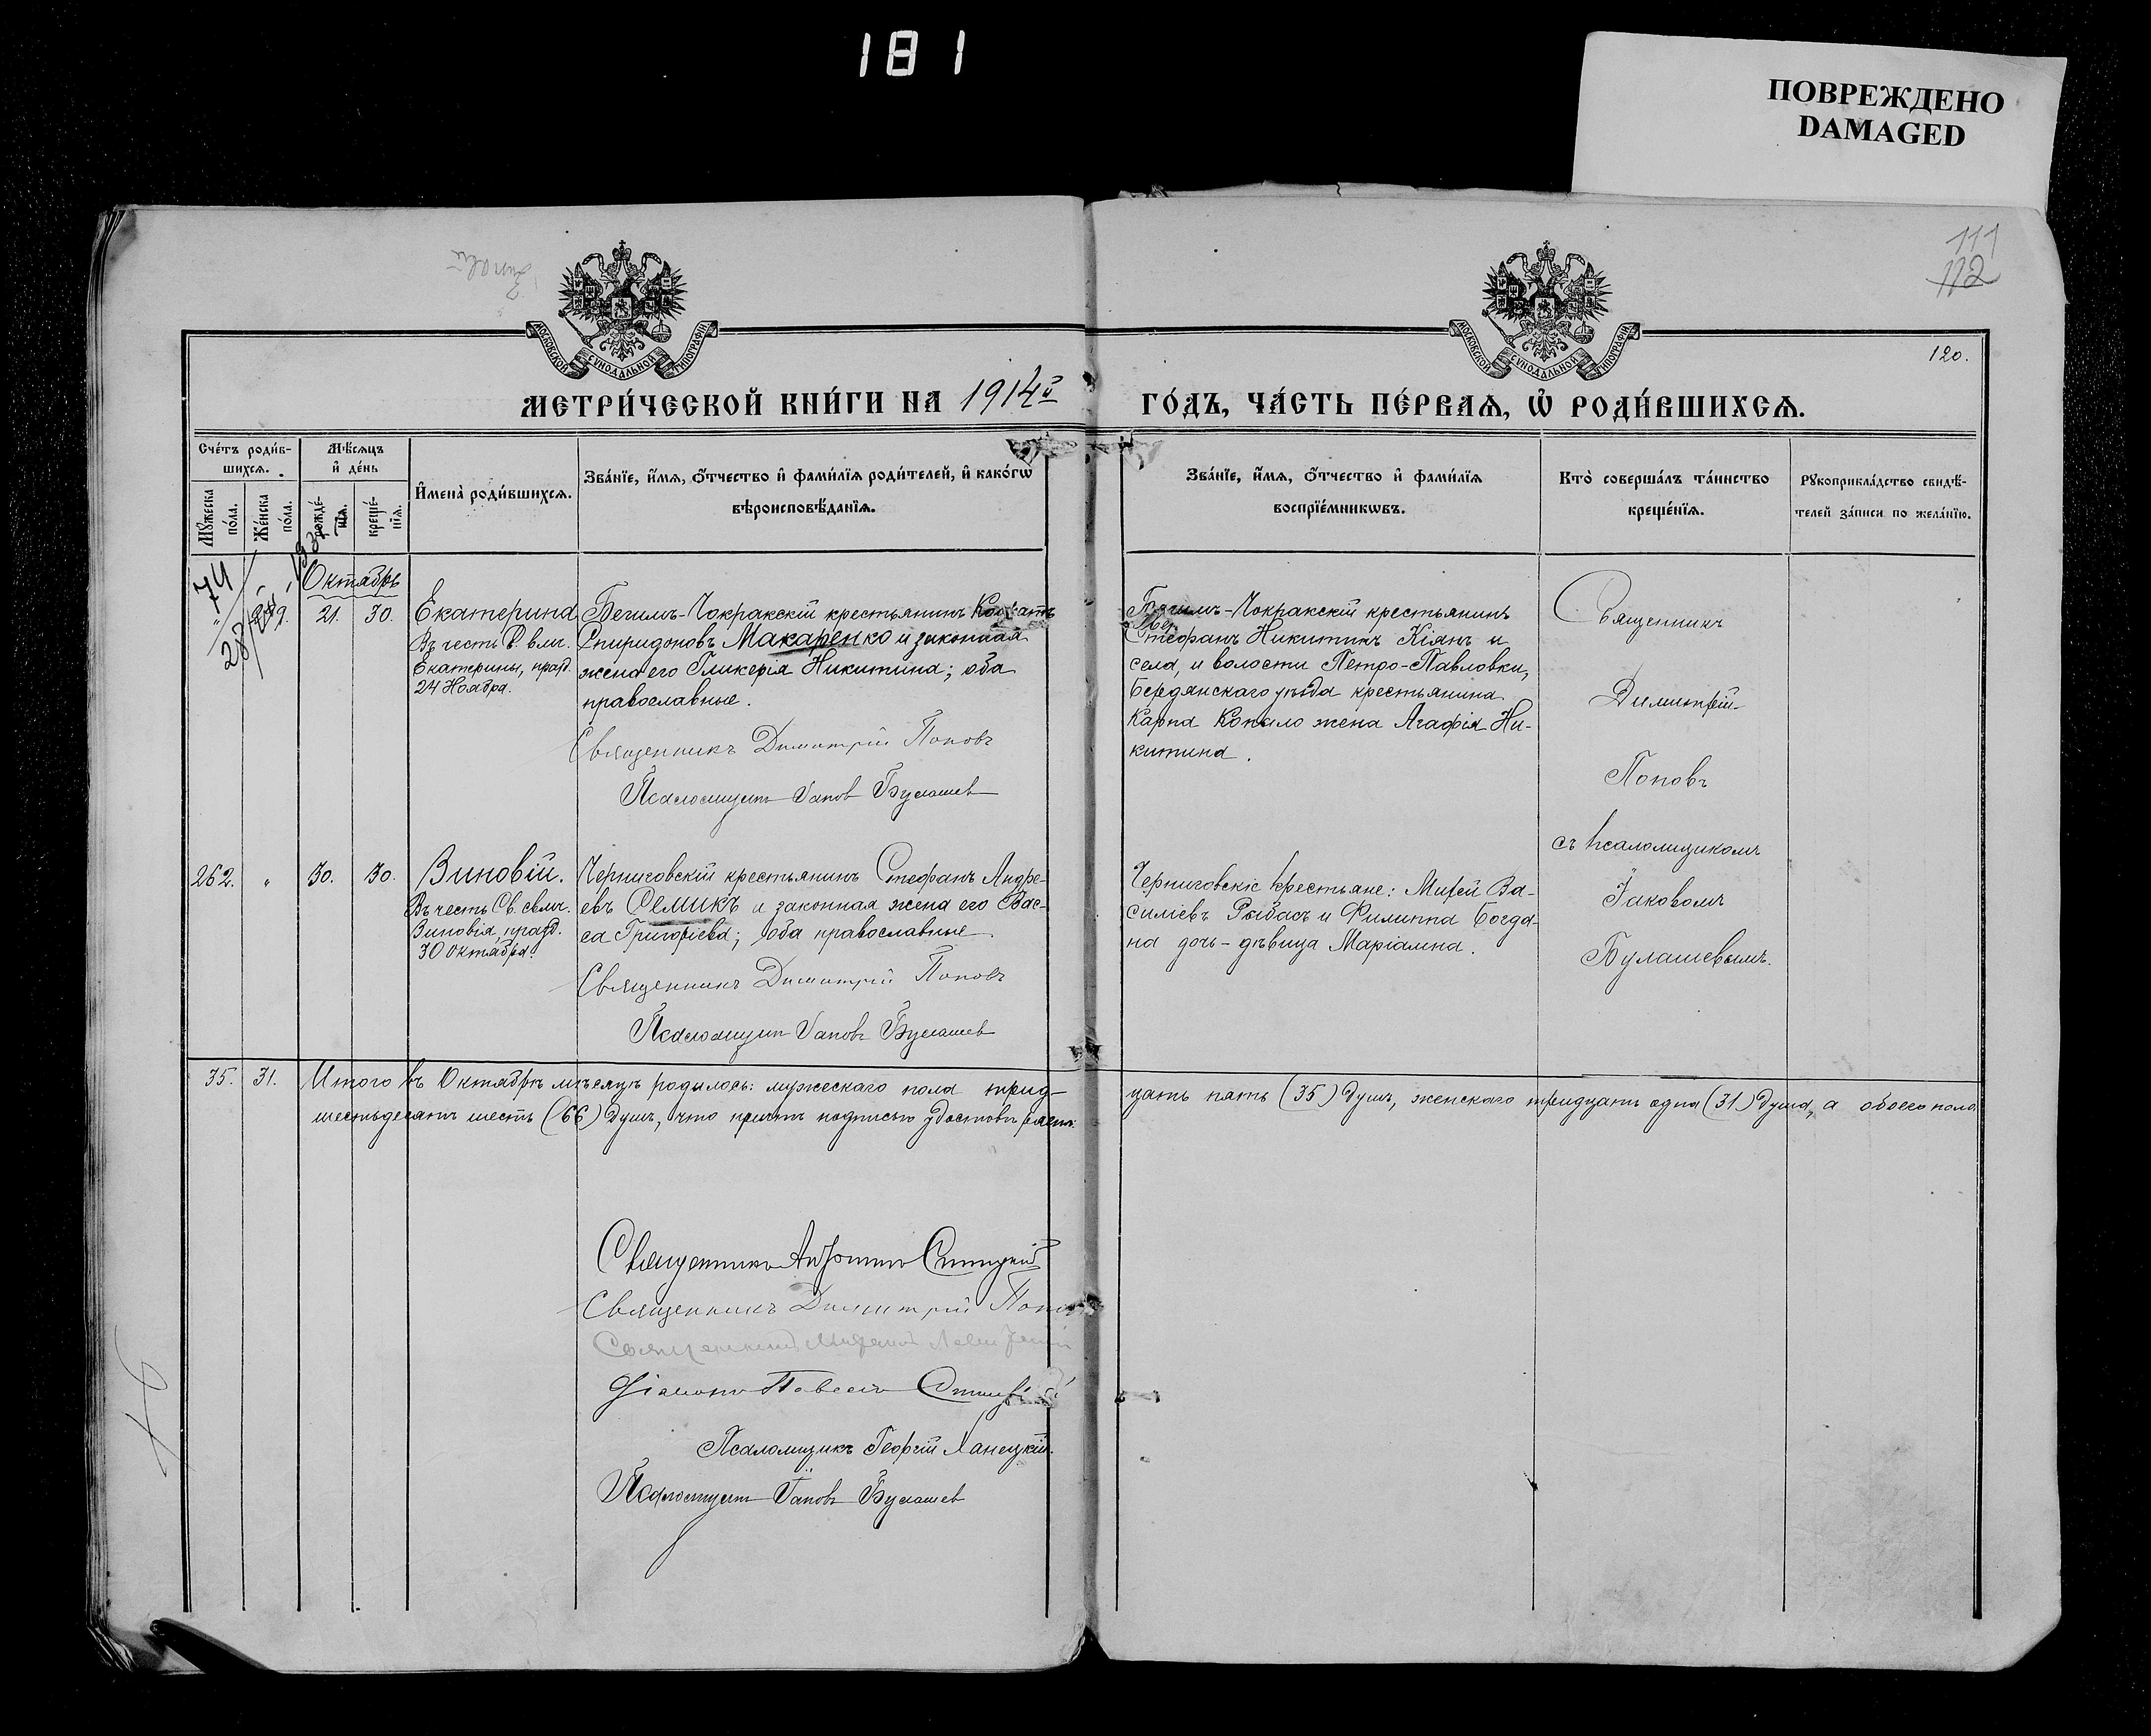 181
ПОВРЕЖДЕНО
DAMAGED
111
112
120.
МОСКОВСКОЙ СѴНОДАЛЬНОЙ ТИПОГРАФІИ
МОСКОВСКОЙ СѴНОДАЛЬНОЙ ТИПОГРАФІИ
МЕТРИ́ЧЕСКОЙ КНИ́ГИ НА 1914й
ГО́ДЪ, ЧА́СТЬ ПЕ́РВАЯ, Ѡ҆ РОДИ́ВШИХСЯ.
Сче́тъ роди́в-
шихся.
Мѣ́сяцъ
и҆ де́нь
Мꙋ́жеска по́ла.
Же́нска по́ла.
рожде́-нїя.
креще́-нїя.
И҆мена̀ роди́вшихся.
Зва́нїе, и҆́мя, ѻ҆́тчество и҆ фами́лїя роди́телей, и҆ како́гѡ
вѣроисповѣ́данїя.
Зва́нїе, и҆́мя, ѻ҆́тчество и҆ фами́лїя
воспрїе́мникѡвъ.
Кто̀ соверша́лъ та́инство
креще́нїя.
Рꙋкоприкла́дство свидѣ́-
телей за́писи по жела́нїю.
74
Октябрь
21. 30.
Екатерина
Въ честь Св. влмч.
Екатерины, празд.
24 Ноября.
Бегимъ-Чокракскій крестьянинъ
Спиридоновъ Макаренко и законная
жена его Гликерія Никитина; оба
православные.
Священникъ Димитрій Поповъ
Псаломщикъ Іаковъ Булашев
Бегимъ-Чокракскій крестьянинъ
Стефанъ Никитинъ Кіянъ и
села, и волости Петро-Павловки,
Бердянскаго уѣзда крестьянина
Карпа Копыло жена Агафія Ни-
китина.
Священникъ
Димитрій
Поповъ
съ псаломщикомъ
Іаковомъ
Булашевымъ.
262. " 30. 30.
Зиновій.
Въ честь Св. свмч.
Зиновія, празд.
30 Октября.
Черниговскій крестьянинъ Стефанъ Андре-
евъ Семикъ и законная жена его Вас-
са Григоріева; оба православные.
Священникъ Димитрій Поповъ
Псаломщикъ Іаковъ Булашев
Черниговскіе крестьяне: Ва-
силіевъ Рыбасъ и Филиппа Богда-
на дочь-дѣвица Маріамна.
35. 31. Итого въ Октябрѣ мѣсяцѣ родилось: мужескаго пола трид-
цать пять (35) душъ, женскаго тридцать одна (31) душа, а обоего пола
шестьдесятъ шесть (66) душъ, что причтъ подписью удостовѣряетъ:
Священникъ
Священникъ Димитрій Попов
Священникъ
Діаконъ
Псаломщикъ Георгій Ханецкій.
Псаломщикъ Іаковъ Булашев